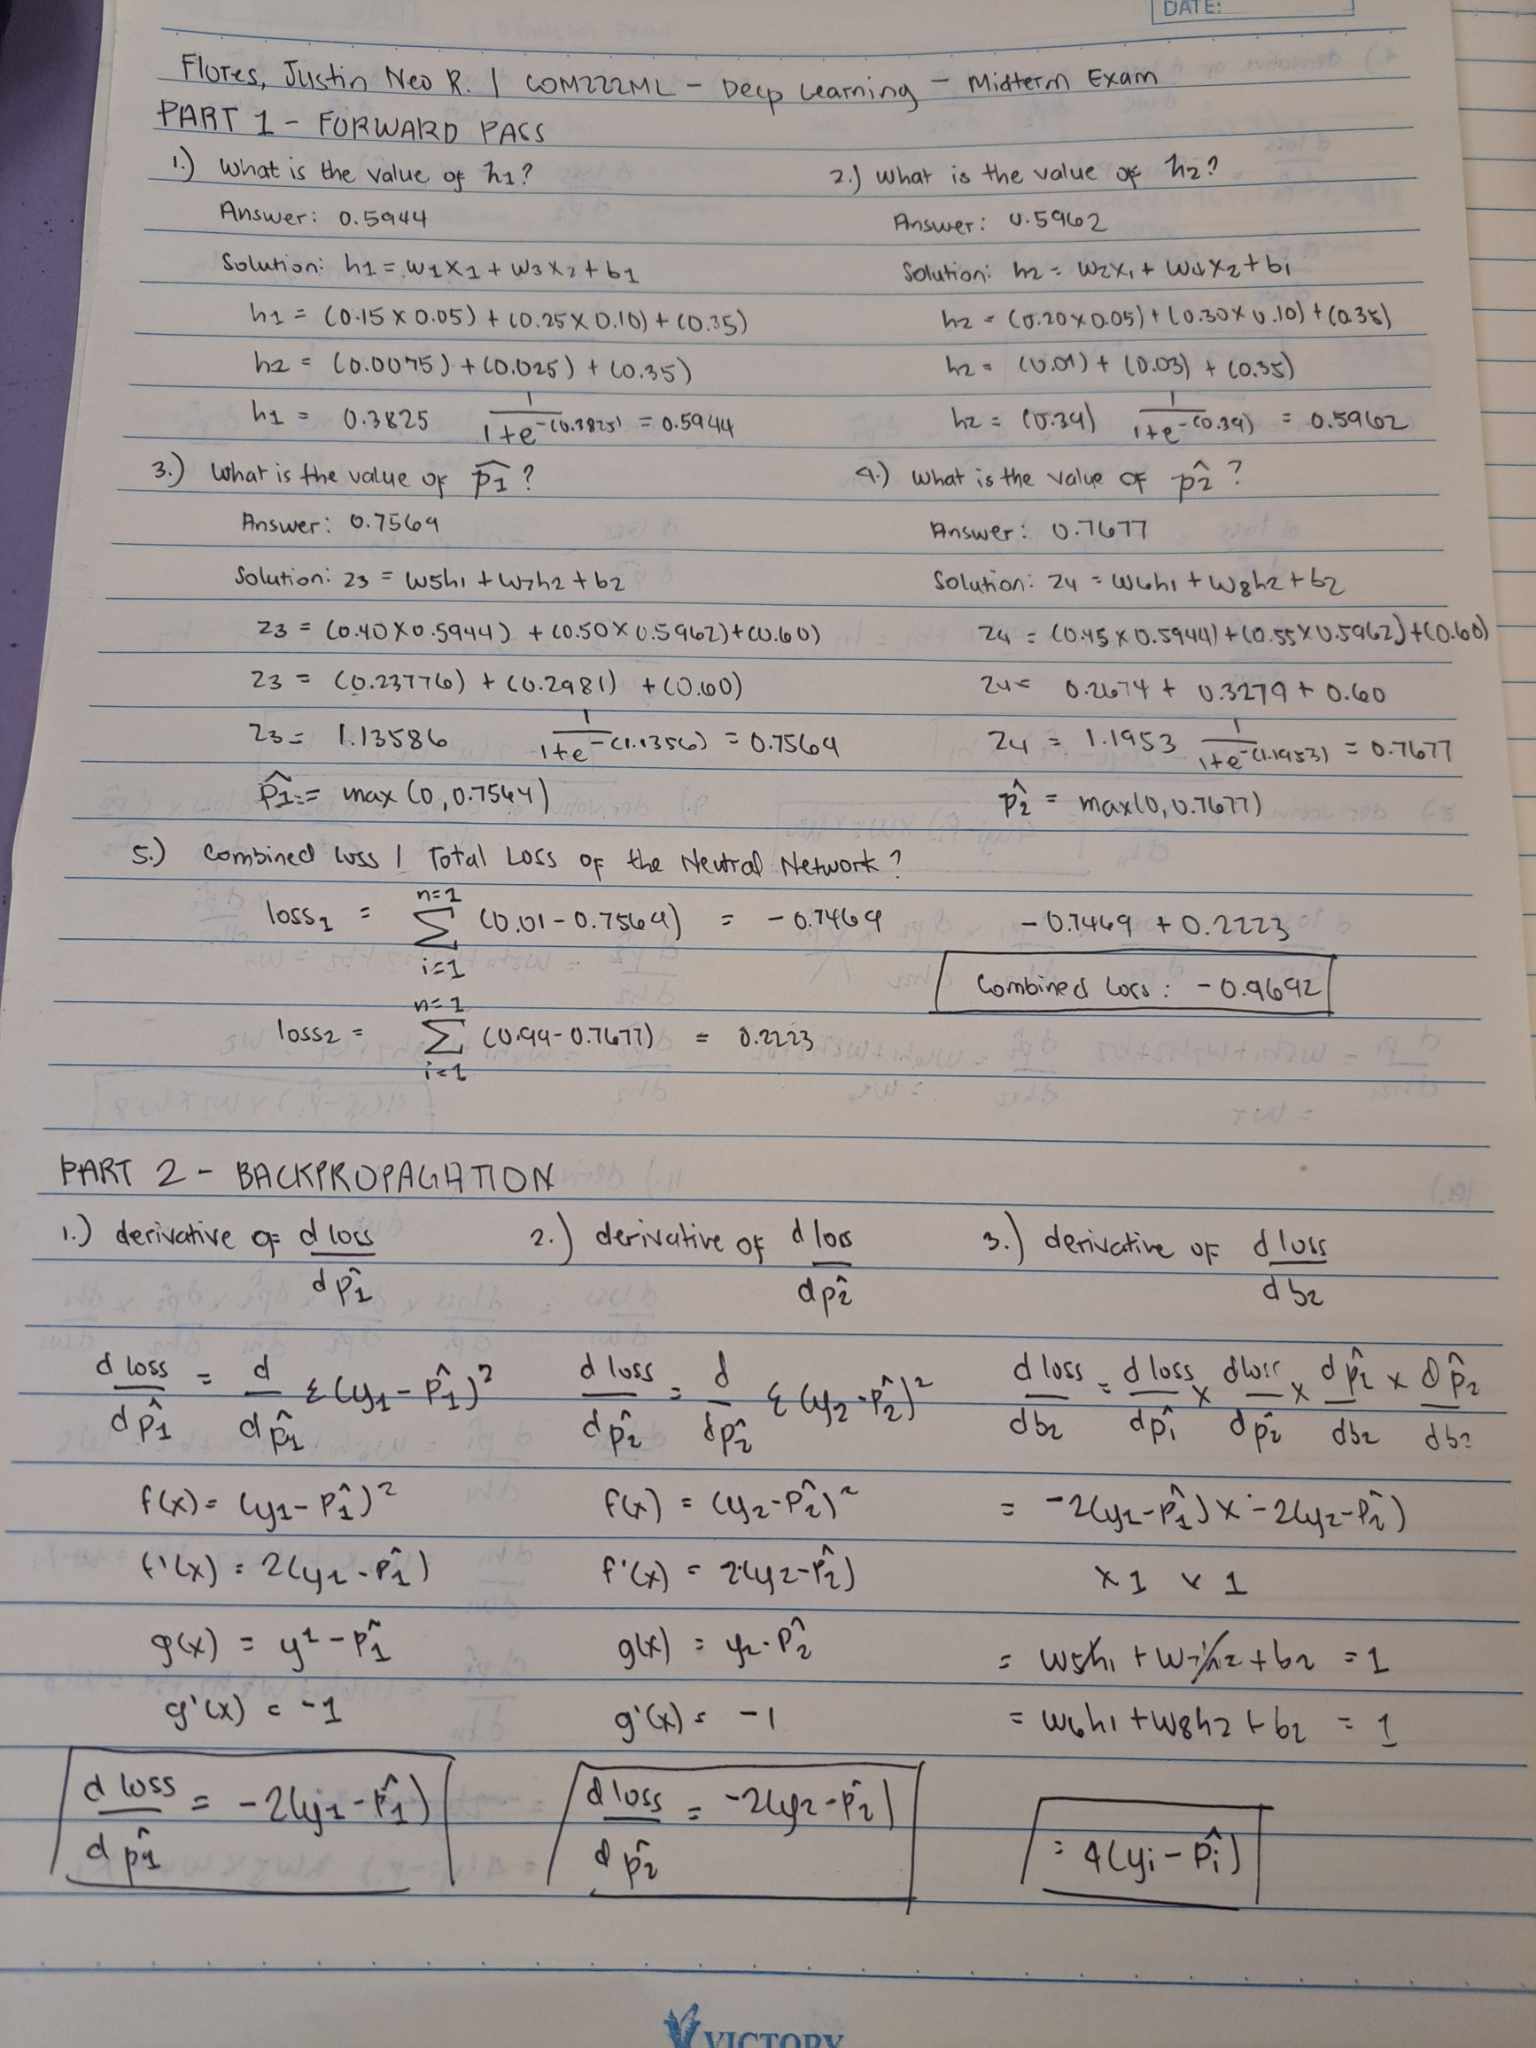 DATE:
Flores, Justin Neo R. | COM222ML - Deep Learning - Midterm Exam
PART 1 - FORWARD PASS
1.) What is the value of h1?
Answer: 0.5944
Solution: h1 = w1x1 + w3x2 + b1
h1 = (0.15 x 0.05) + (0.25 x 0.10) + (0.35)
h2 = (0.0075) + (0.025) + (0.35)
h1 = 0.3825 1/1+e^-(0.3825) = 0.5944
2.) What is the value of h2?
Answer: 0.5962
Solution: h2 = w2x1 + w4x2 + b1
h2 = (0.20 x 0.05) + (0.30 x 0.10) + (0.35)
h2 = (0.01) + (0.03) + (0.35)
h2 = (0.39) 1/1+e^-(0.39) = 0.5962
3.) What is the value of p̂1?
Answer: 0.7569
Solution: z3 = w5h1 + w7h2 + b2
z3 = (0.40 x 0.5944) + (0.50 x 0.5962) + (0.60)
z3 = (0.23776) + (0.2981) + (0.60)
z3 = 1.13586 1/1+e^-(1.1356) = 0.7569
p̂1 = max (0, 0.7569)
4.) What is the value of p̂2?
Answer: 0.7677
Solution: z4 = w6h1 + w8h2 + b2
z4 = (0.45 x 0.5944) + (0.55 x 0.5962) + (0.60)
z4 = 0.2674 + 0.3279 + 0.60
z4 = 1.1953 1/1+e^-(1.1953) = 0.7677
p̂2 = max(0, 0.7677)
5.) Combined loss | Total Loss of the Neutral Network?
loss1 = n=1 Σ i=1 (0.01 - 0.7569) = -0.7469
loss2 = n=1 Σ i=1 (0.99 - 0.7677) = 0.2223
-0.7469 + 0.2223
Combined Loss: -0.9692
PART 2 - BACKPROPAGATION
1.) derivative of d loss/d p̂1
d loss/d p̂1 = d/d p̂1 Σ(y1 - p̂1)²
f(x) = (y1 - p̂1)²
f'(x) = 2(y1 - p̂1)
g(x) = y1 - p̂1
g'(x) = -1
d loss/d p̂1 = -2(y1 - p̂1)
2.) derivative of d loss/d p̂2
d loss/d p̂2 = d/d p̂2 Σ(y2 - p̂2)²
f(x) = (y2 - p̂2)²
f'(x) = 2(y2 - p̂2)
g(x) = y2 - p̂2
g'(x) = -1
d loss/d p̂2 = -2(y2 - p̂2)
3.) derivative of d loss/d b2
d loss/d b2 = d loss/d p̂1 x d loss/d p̂2 x d p̂1/d b2 x d p̂2/d b2
= -2(y1 - p̂1) x -2(y2 - p̂2)
x 1 x 1
= w5h1 + w7h2 + b2 = 1
= w6h1 + w8h2 + b2 = 1
= 4(yi - p̂i)
VICTORY